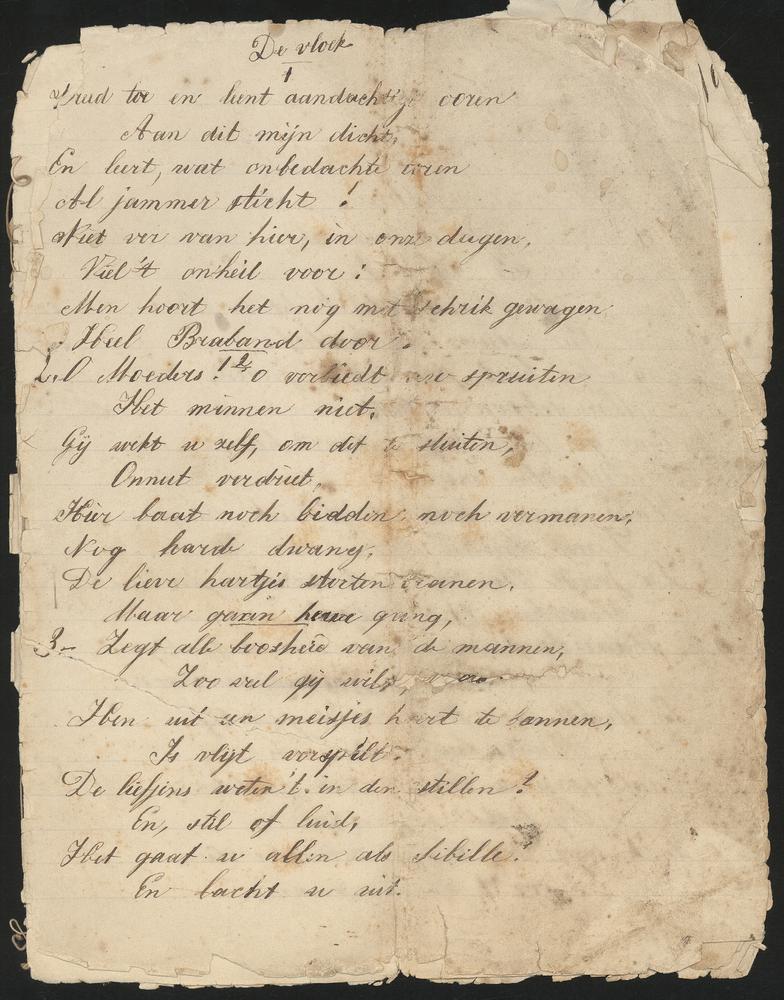 De vloek
1
Treed toe en leent aandachtige ooren
Aan dit mijn dicht,
En leert, wat onbedachte toren
Al jammer sticht !
Niet ver van hier, in onze dagen,
Viel 't onheil voor :
Men hoort het nog met schrik gewagen
Heel Braband door.
2. O Moeders ! o verbiedt uw spruiten
Het minnen niet.
Gij wekt u zelf, om dit te stuiten,
Onnut verdriet.
Hier baat noch bidden, noch vermanen,
Nog harde dwang,
De lieve hartjes storten tranen,
Maar gaan heur gang,
3- Zegt alle boosheid van de mannen,
Zoo veel gij wilt,
Hen uit een meisjes hart te bannen,
Is vlijt verspilt.
De liefjens weten 't in den stillen !
En, stil of luid,
Het gaat u allen als Sibille.
En lacht u uit.